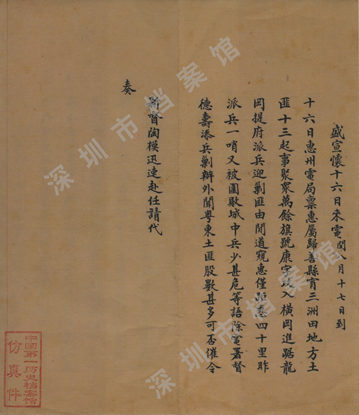 盛宣懷十六日來電閏八月十七日到
十六日惠州電局稟惠屬歸善縣育三洲田地方土
匪十三起事聚衆萬餘旗號康字攻入橫岡進踞龍
岡提府派兵迎剿匪由間道窺惠僅距惠四十里昨
派兵一哨又被圍歐城中兵少甚危等語除電署督
德壽添兵剿辦外聞粵東土匪股數甚多可否催令
新督陶模迅速赴任請代
奏
中國第一歷史檔案館
仿真件
深圳市档案馆
深圳市档案馆
深圳市档案馆